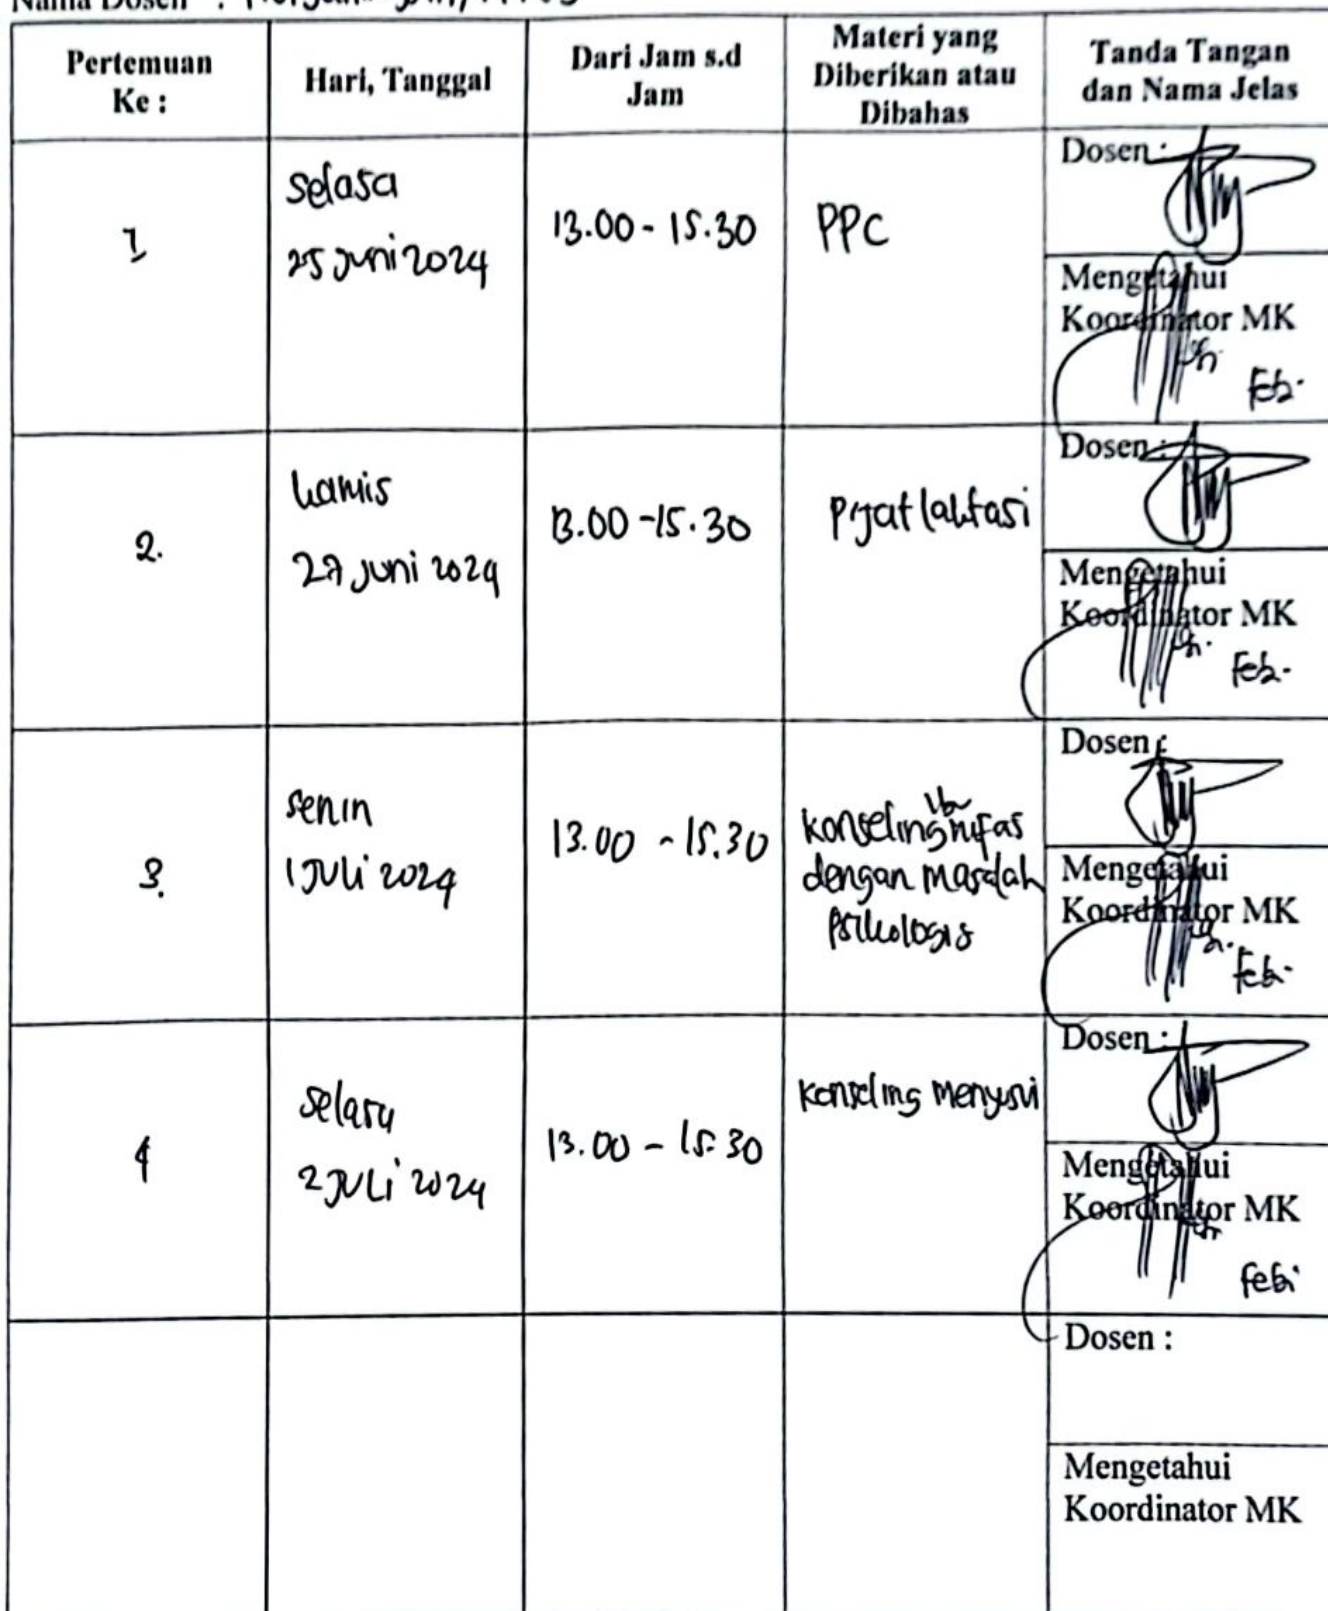 Nama Dosen :
Pertemuan
Ke :
Hari, Tanggal
Dari Jam s.d
Jam
Materi yang
Diberikan atau
Dibahas
Tanda Tangan
dan Nama Jelas
1
Selasa
25 Juni 2024
13.00 - 15.30
PPC
Dosen :
Mengetahui
Koordinator MK
Feb.
2.
Kamis
27 Juni 2024
13.00 - 15.30
Pijat laktasi
Dosen :
Mengetahui
Koordinator MK
Feb.
3.
Senin
1 Juli 2024
13.00 - 15.30
Konseling nifas
dengan masalah
Psikologis
Dosen :
Mengetahui
Koordinator MK
Feb.
4
Selasa
2 Juli 2024
13.00 - 15.30
Konseling menyusui
Dosen :
Mengetahui
Koordinator MK
Febi
Dosen :
Mengetahui
Koordinator MK